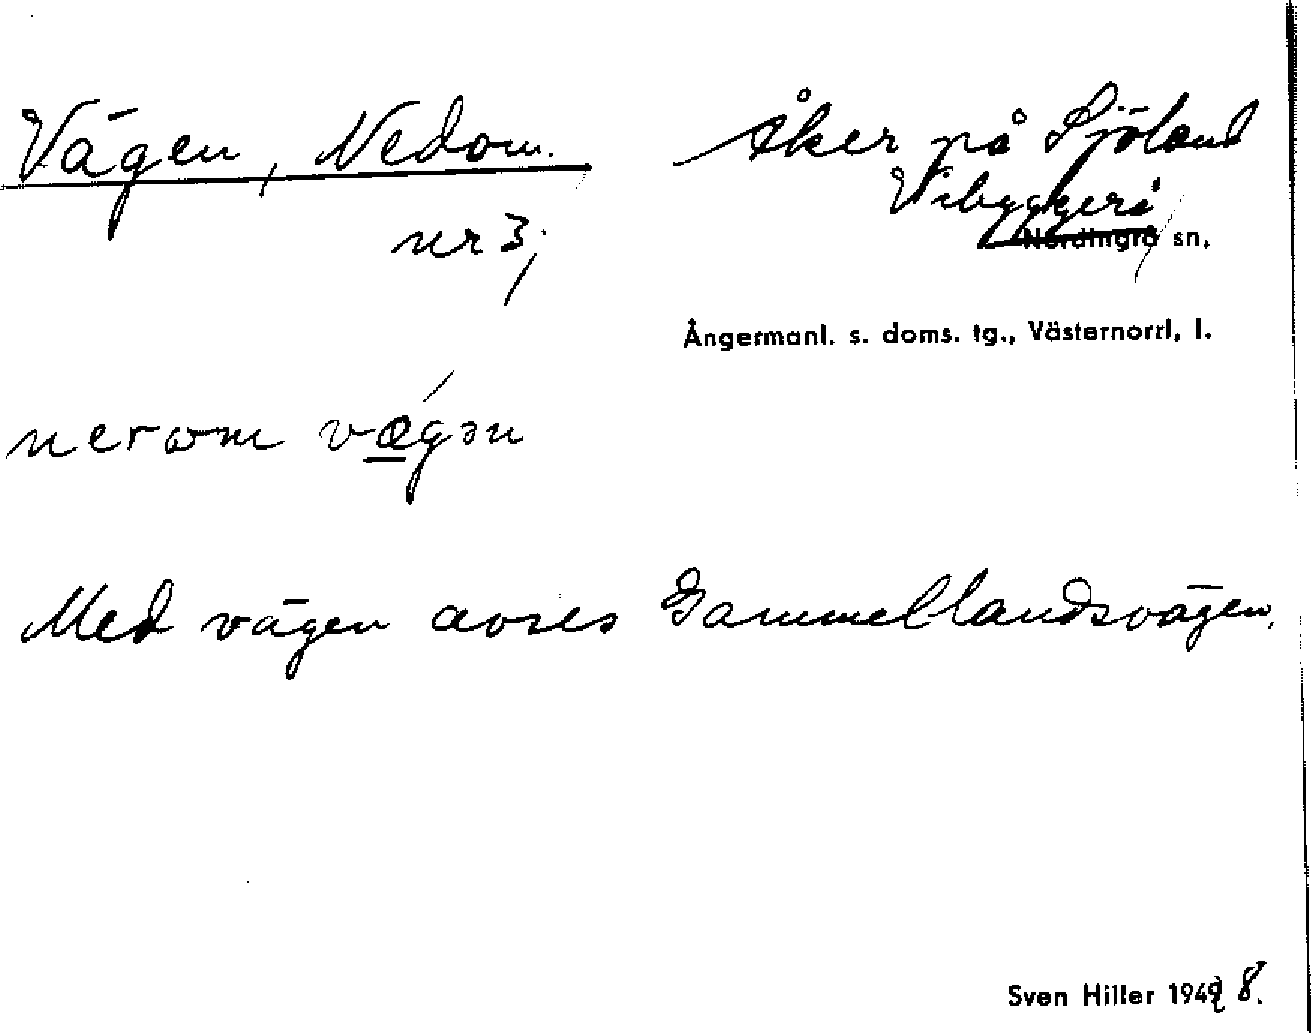 Vägen, Nedom.
nr 3,
Åker på Sjöland
Vibyggerå
Nordingrå sn,
Ångermanl. s. doms. tg., Västernorrl, l.
nerom vægən
Med vägen avses Gammel-landsvägen.
Sven Hiller 1949 8.